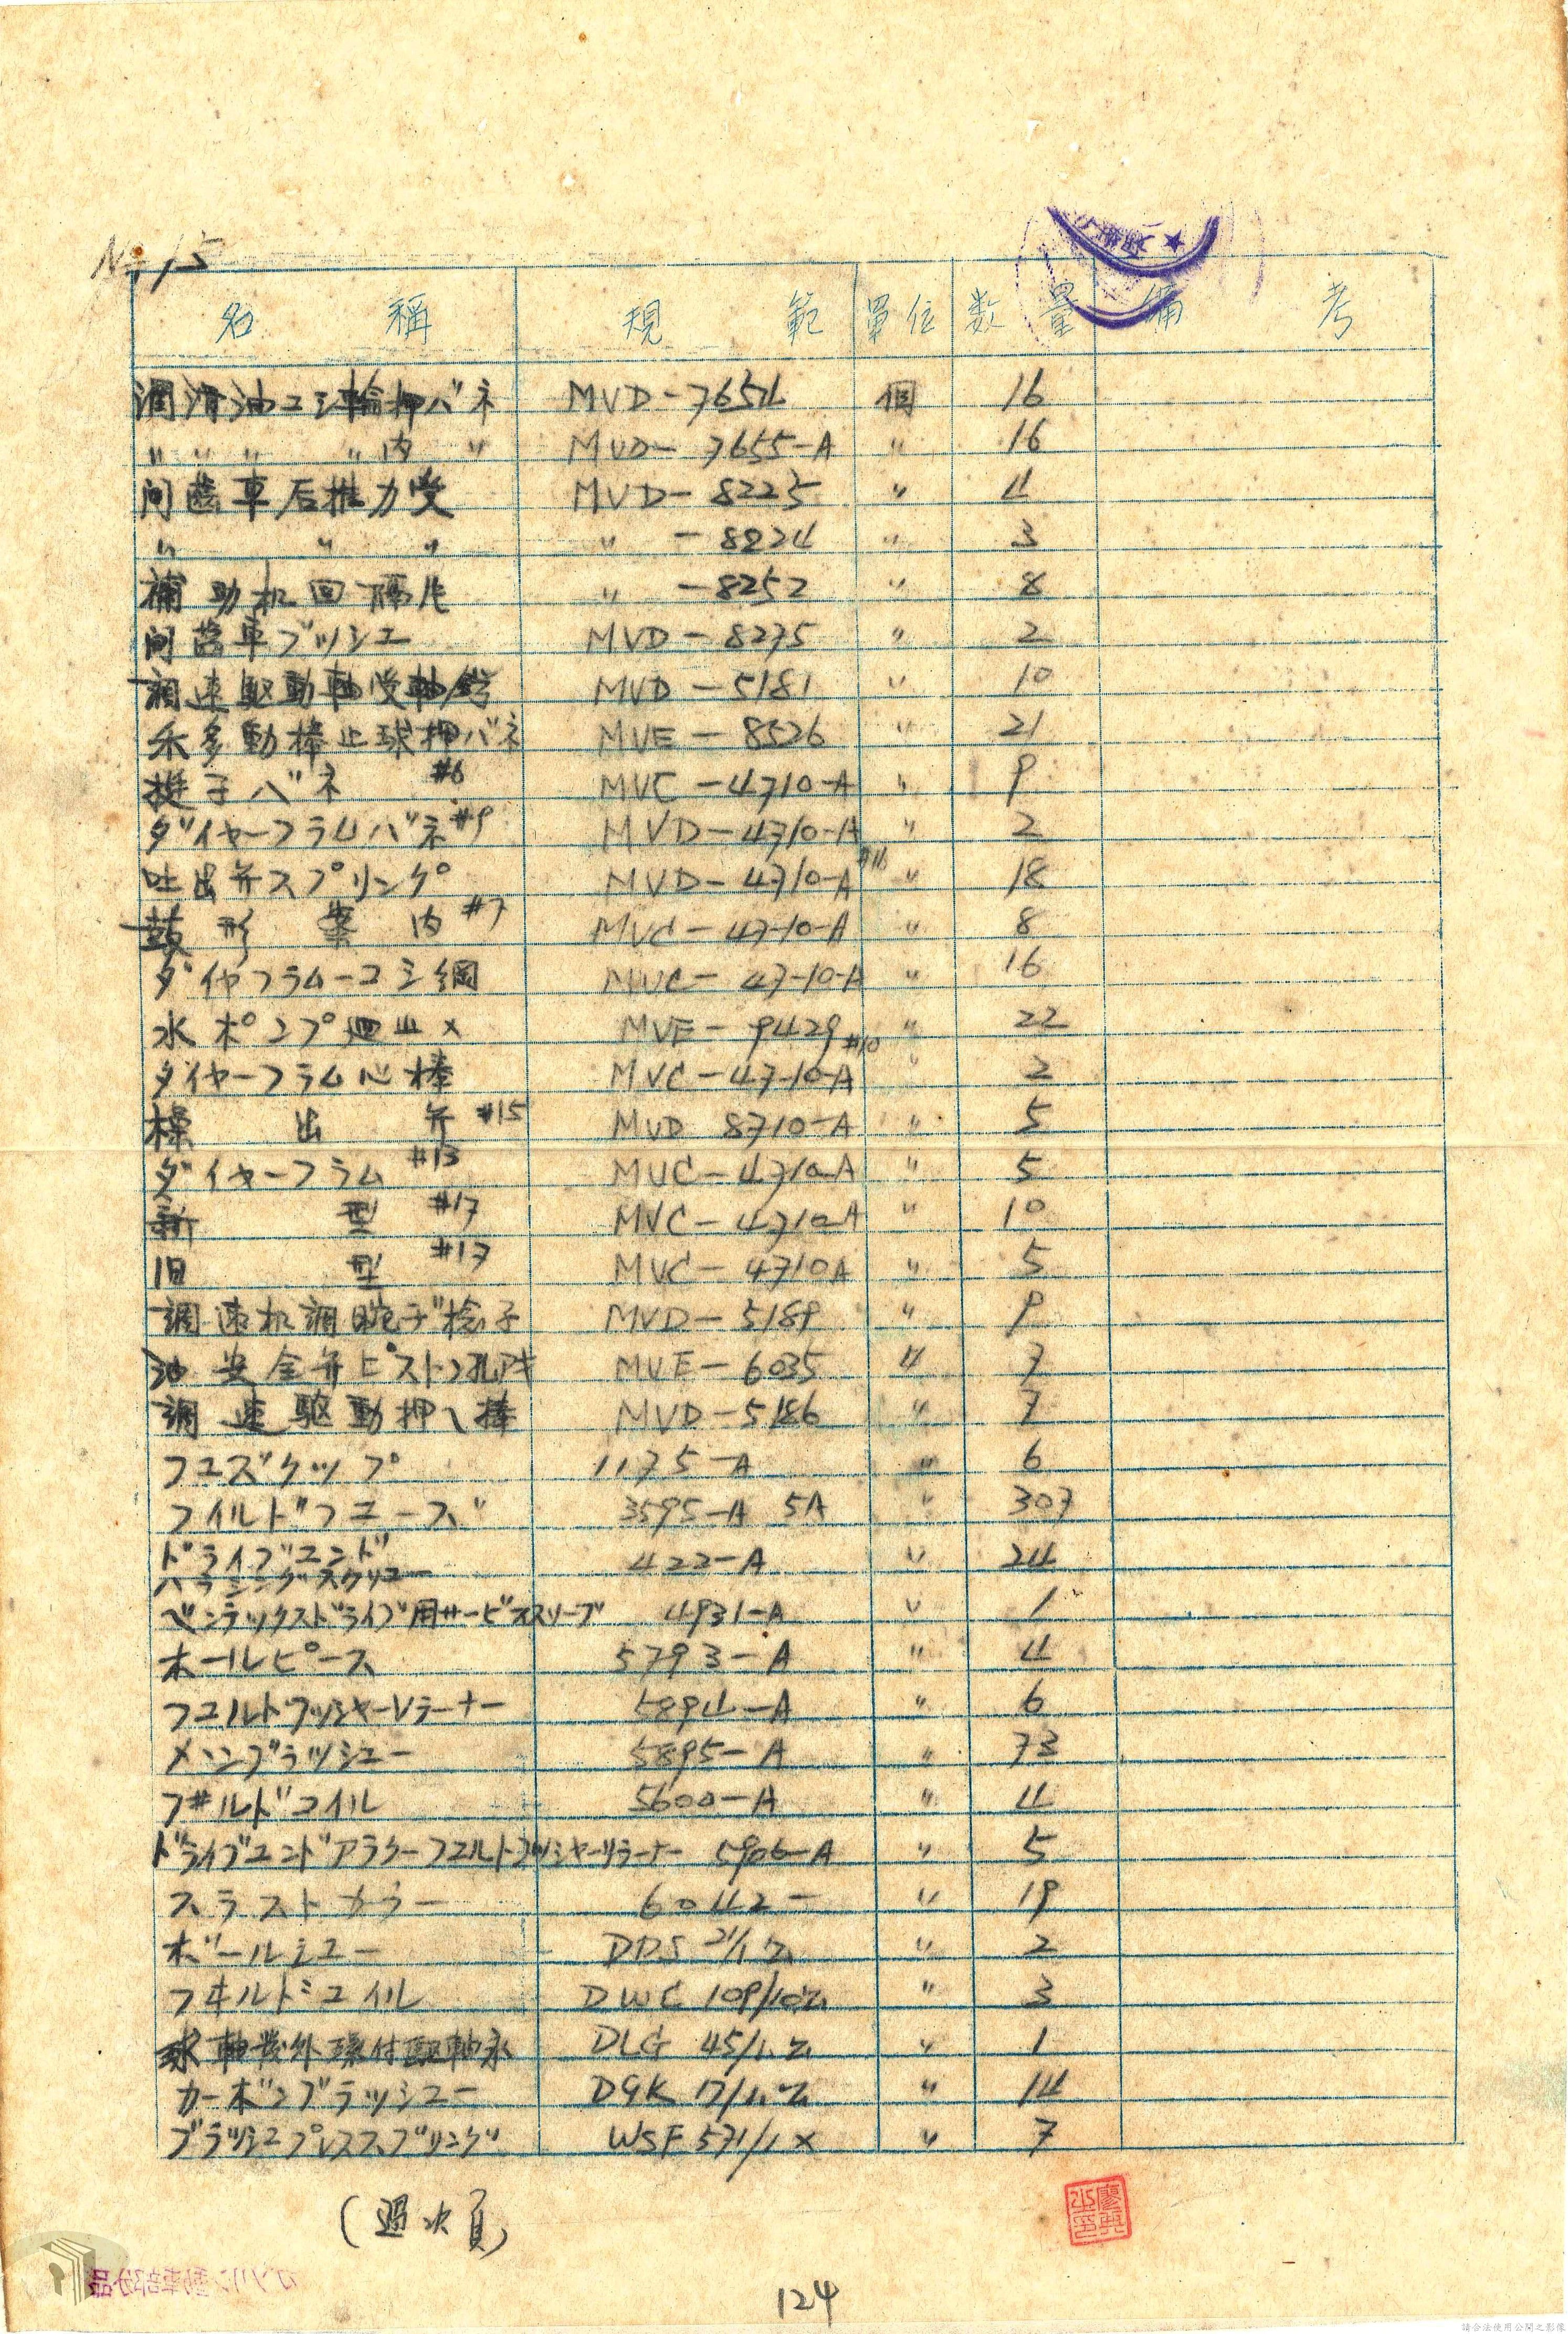 No. 15
名 稱 規 範 單位 数量 備 考
潤滑油コシ輪押バネ MVD-7654 個 16
〃 〃 〃 〃 内 〃 MVD-7655-A 〃 16
间齒車后推力受 MVD-8225 〃 4
〃 〃 〃 〃 -8224 〃 3
補助机回隔片 〃 -8252 〃 8
间齒車ブッシュ MVD-8275 〃 2
調速駆動軸受軸 MVD-5181 〃 10
動棒止球押バネ MVE-8526 〃 21
挺子バネ #6 MVC-4710-A 〃 9
ダイヤーフラムバネ #9 MVD-4710-A 〃 2
吐出弁スプリング MVD-4710-A #16 〃 18
鼓形案内 #7 MVC-4710-A 〃 8
ダイヤフラムーコシ網 MVC-4710-A 〃 16
水ポンプ廻止メ MVE-9429 〃 22
ダイヤーフラム心棒 MVC-4710-A #10 〃 2
出弁 #15 MVD 8710-A 〃 5
ダイヤーフラム #13 MVC-4710A 〃 5
新型 #17 MVC-4710A 〃 10
旧型 #17 MVC-4710A 〃 5
調速机調 捻子 MVD-5189 〃 9
油安全弁ピストン孔 MVE-6035 〃 7
調速駆動押棒 MVD-5186 〃 7
フユズケップ 1175-A 〃 6
フイルドフユーズ 3595-A 5A 〃 307
ドライブエンド
ハラシングスクリュー 422-A 〃 24
ベンデックストドライブ用サービススリーブ 4931-A 〃 1
ホールピース 5793-A 〃 4
フエルトワッシャーレテーナー 5894-A 〃 6
メンブラッシュー 5895-A 〃 73
フ井ルドコイル 5600-A 〃 4
ドライブエンドアラクーフエルトワッシャーリテーナー 5906-A 〃 5
スラストカラー 6042- 〃 19
ボールシユー DDS 21/1 Z. 〃 2
フ井ルドコイル DWC 109/10Z. 〃 3
DLG 45/1. Z. 〃 1
カーボンブラッシュー DGK 17/1. Z. 〃 14
ブラッシュプレスブリング WSF 571/1 X 〃 7
(過次頁)
124
ガソリン動車部分品
請合法使用公開之影像